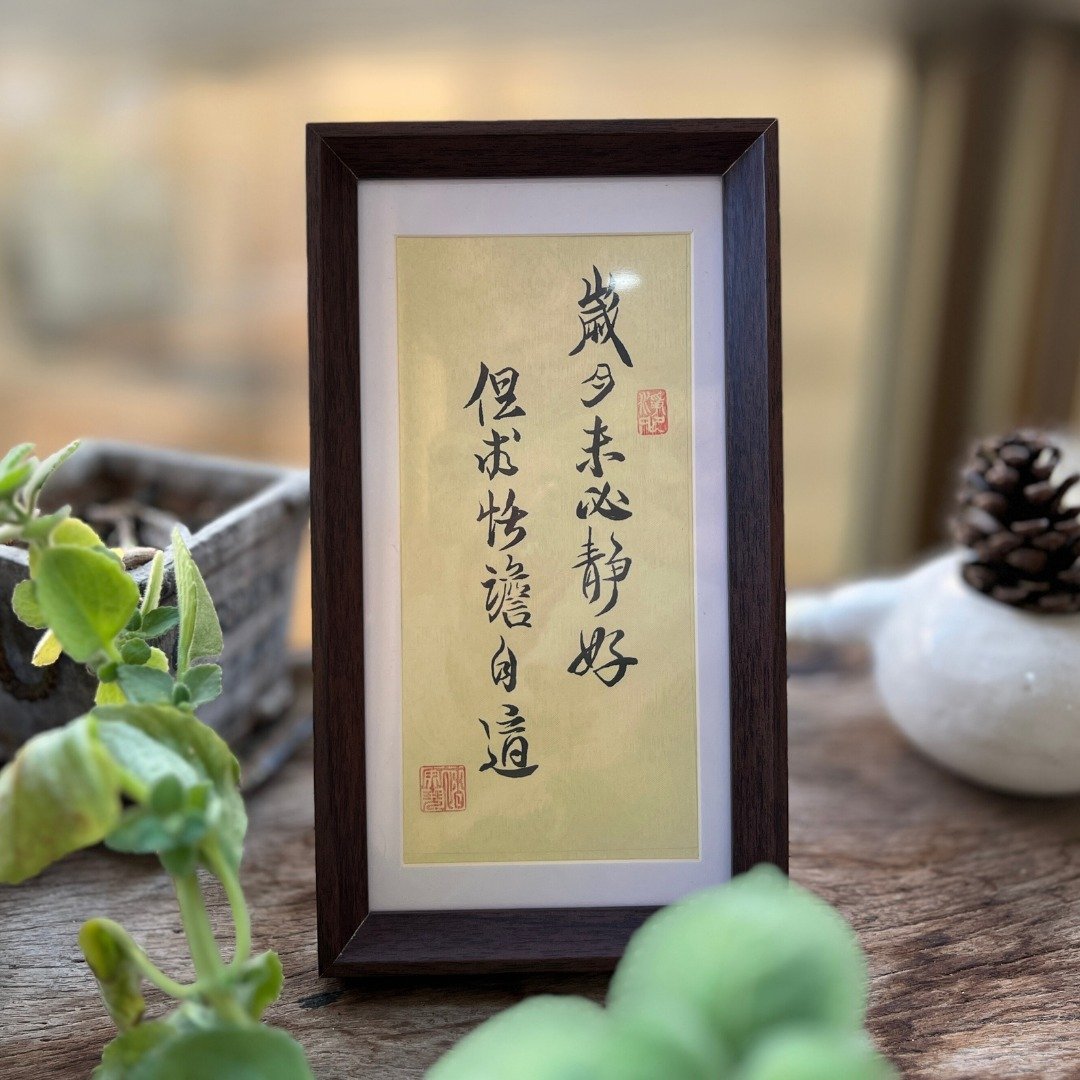 歲月未必靜好
但求恬澹自適